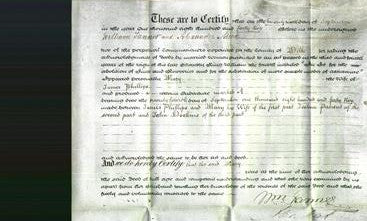 These are to Certify that on the day of September
in the year one thousand eight hundred and forty five
William Tanner and
two of the perpetual commissioners appointed for the county of Wilts for taking the
acknowledgments of deeds by married women pursuant to an act passed in the third and fourth
years of the reign of his late Majesty King William the Fourth intituled An act for the
abolition of fines and recoveries and for the substitution of more simple modes of assurance
Appeared personally Mary the wife of
James Phillips
and produced a certain Indenture marked A
bearing date the twenty fourth day of September one thousand eight hundred and forty five
made between James Phillips and Mary his wife of the first part
second part and John of the third part
and acknowledged the same to be her act and deed
And we do hereby Certify that the said Mary
was at the time of her acknowledging
the said Deed of full age and competent understanding and that she was examined by us
apart from her husband touching her knowledge of the contents of the said Deed and that she
freely and voluntarily consented to the same
Wm Tanner